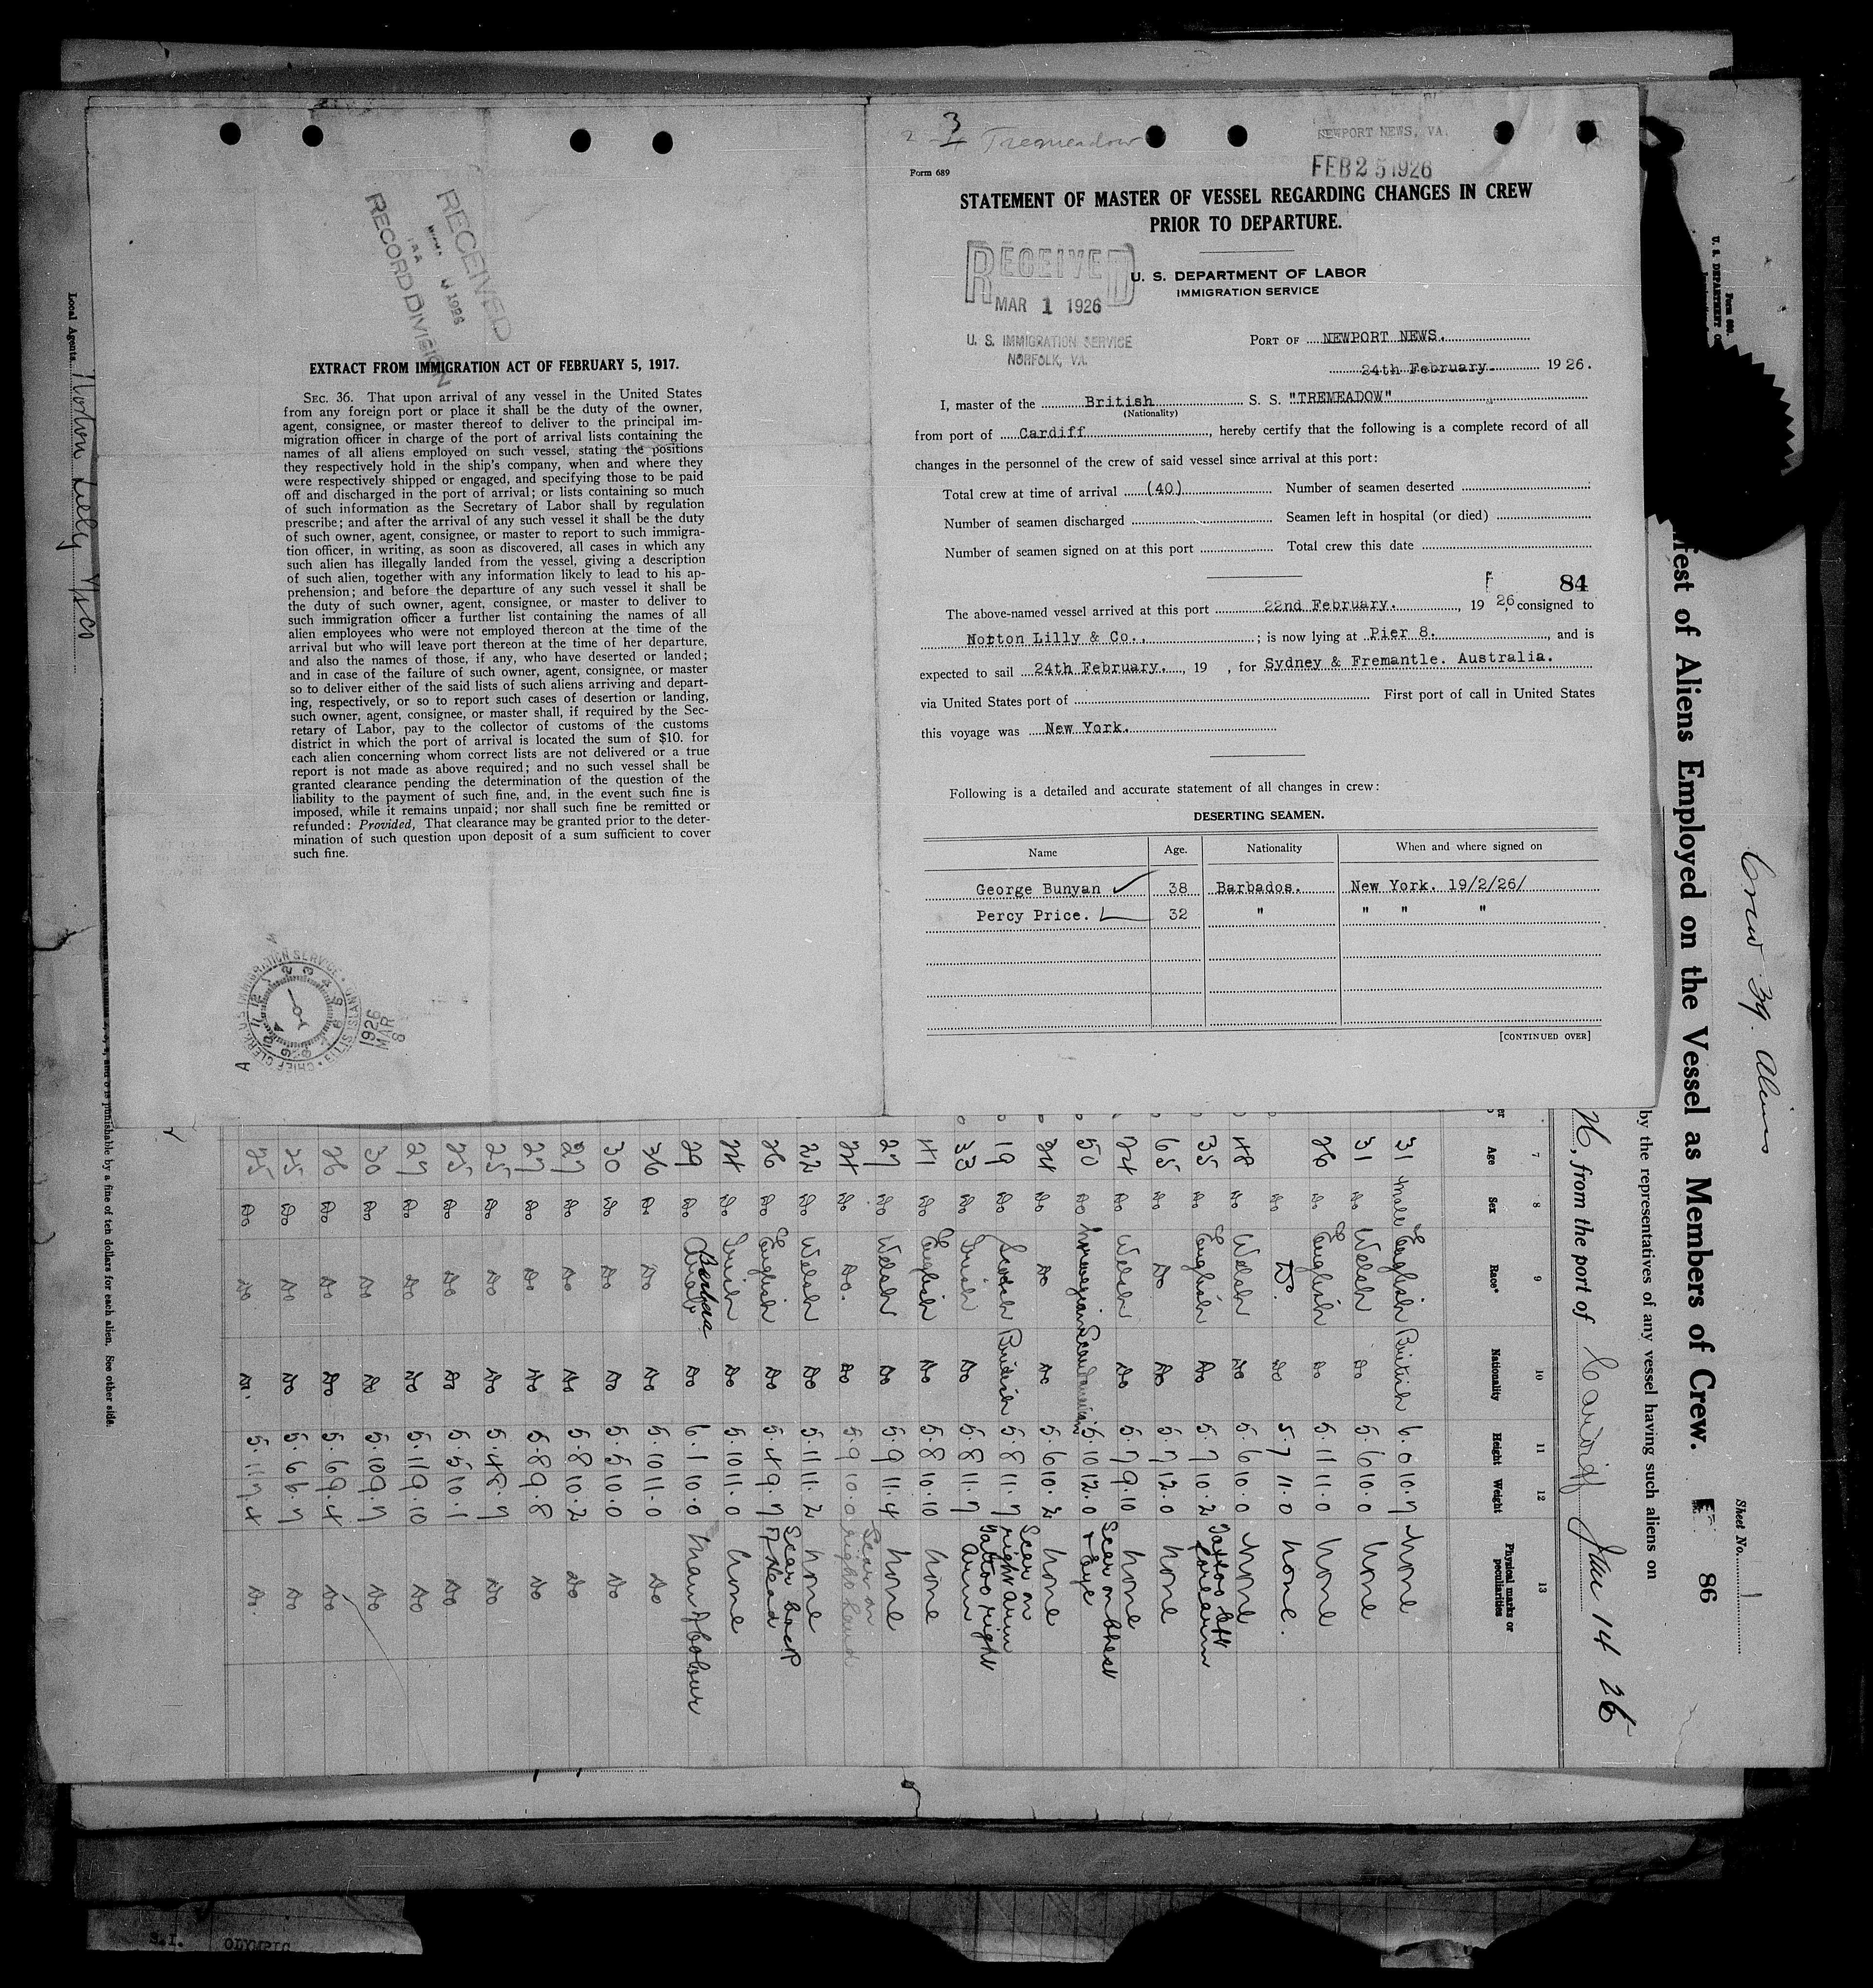 3
2 - 4 Tremeadow
NEWPORT NEWS, VA.
FEB 25 1926
Form 689
STATEMENT OF MASTER OF VESSEL REGARDING CHANGES IN CREW
PRIOR TO DEPARTURE.
RECEIVED
MAR 1 1926
U. S. IMMIGRATION SERVICE
NORFOLK, VA.
U. S. DEPARTMENT OF LABOR
IMMIGRATION SERVICE
PORT OF NEWPORT NEWS.
24th February. 1926.
I, master of the British S. S. "TREMEADOW"
(Nationality)
from port of Cardiff, hereby certify that the following is a complete record of all
changes in the personnel of the crew of said vessel since arrival at this port:
Total crew at time of arrival (40) Number of seamen deserted
Number of seamen discharged Seamen left in hospital (or died)
Number of seamen signed on at this port Total crew this date
84
The above-named vessel arrived at this port 22nd February., 1926, consigned to
Norton Lilly & Co.,; is now lying at Pier 8., and is
expected to sail 24th February., 19 , for Sydney & Fremantle. Australia.
via United States port of First port of call in United States
this voyage was New York.
Following is a detailed and accurate statement of all changes in crew:
DESERTING SEAMEN.
Name Age. Nationality When and where signed on
George Bunyan ✓ 38 Barbados. New York. 19/2/26/
Percy Price. 32 " " " "
[CONTINUED OVER]
RECEIVED
1926
RECORD DIVISION
EXTRACT FROM IMMIGRATION ACT OF FEBRUARY 5, 1917.
SEC. 36. That upon arrival of any vessel in the United States
from any foreign port or place it shall be the duty of the owner,
agent, consignee, or master thereof to deliver to the principal im-
migration officer in charge of the port of arrival lists containing the
names of all aliens employed on such vessel, stating the positions
they respectively hold in the ship's company, when and where they
were respectively shipped or engaged, and specifying those to be paid
off and discharged in the port of arrival; or lists containing so much
of such information as the Secretary of Labor shall by regulation
prescribe; and after the arrival of any such vessel it shall be the duty
of such owner, agent, consignee, or master to report to such immigra-
tion officer, in writing, as soon as discovered, all cases in which any
such alien has illegally landed from the vessel, giving a description
of such alien, together with any information likely to lead to his ap-
prehension; and before the departure of any such vessel it shall be
the duty of such owner, agent, consignee, or master to deliver to
such immigration officer a further list containing the names of all
alien employees who were not employed thereon at the time of the
arrival but who will leave port thereon at the time of her departure,
and also the names of those, if any, who have deserted or landed;
and in case of the failure of such owner, agent, consignee, or master
so to deliver either of the said lists of such aliens arriving and depart-
ing, respectively, or so to report such cases of desertion or landing,
such owner, agent, consignee, or master shall, if required by the Sec-
retary of Labor, pay to the collector of customs of the customs
district in which the port of arrival is located the sum of $10. for
each alien concerning whom correct lists are not delivered or a true
report is not made as above required; and no such vessel shall be
granted clearance pending the determination of the question of the
liability to the payment of such fine, and, in the event such fine is
imposed, while it remains unpaid; nor shall such fine be remitted or
refunded: Provided, That clearance may be granted prior to the deter-
mination of such question upon deposit of a sum sufficient to cover
such fine.
CHIEF CLERK U. S. IMMIGRATION SERVICE ELLIS ISLAND
1926
MAR
8
A
Crew 39 Aliens
Sheet No. 1
ifest of Aliens Employed on the Vessel as Members of Crew. 86
by the representatives of any vessel having such aliens on
26, from the port of Cardiff Jan 14 26
7 8 9 10 11 12 13
Age Sex Race* Nationality Height Weight Physical marks or
peculiarities
31 Male English British 6.0 10.7 None
31 Do Welsh Do 5.6 10.0 None
26 Do English Do 5.11 11.0 None
Do Do. Do 5.7 11.0 None.
48 Do Welsh Do 5.6 10.0 None
35 Do English Do 5.7 10.2 Tattoo left forearm
65 Do Do Do 5.7 12.0 None
24 Do Welsh Do 5.7 9.10 None
50 Do Norwegian Scandinavian 5.10 12.0 Scar on Chest & Eye
24 Do Do Do 5.6 10.2 None
19 Do Scotch British 5.8 11.7 Scar on right arm
33 Do Irish Do 5.8 11.7 Tattoo right Arm
41 Do English Do 5.8 10.10 None
27 Do Welsh Do 5.9 11.4 None
24 Do Do. Do 5.9 10.0 Scar on right hand
22 Do Welsh Do 5.11 11.2 None
26 Do English Do 5.4 9.7 Scar back of Head
24 Do Irish Do 5.10 11.0 None
29 Do Arab Do 6.1 10.0 Man of Colour
36 Do Do Do 5.10 11.0 Do
30 Do Do Do 5.5 10.0 Do
27 Do Do Do 5.8 10.2 Do
27 Do Do Do 5.8 9.8 Do
25 Do Do Do 5.4 8.7 Do
25 Do Do Do 5.5 10.1 Do
27 Do Do Do 5.11 9.10 Do
30 Do Do Do 5.10 9.7 Do
26 Do Do Do 5.6 9.4 Do
25 Do Do Do 5.6 6.7 Do
25 Do Do Do. 5.11 7.4 Do.
is punishable by a fine of ten dollars for each alien. See other side.
Local Agents Norton Lilly & Co
S.I. OLYMPIC